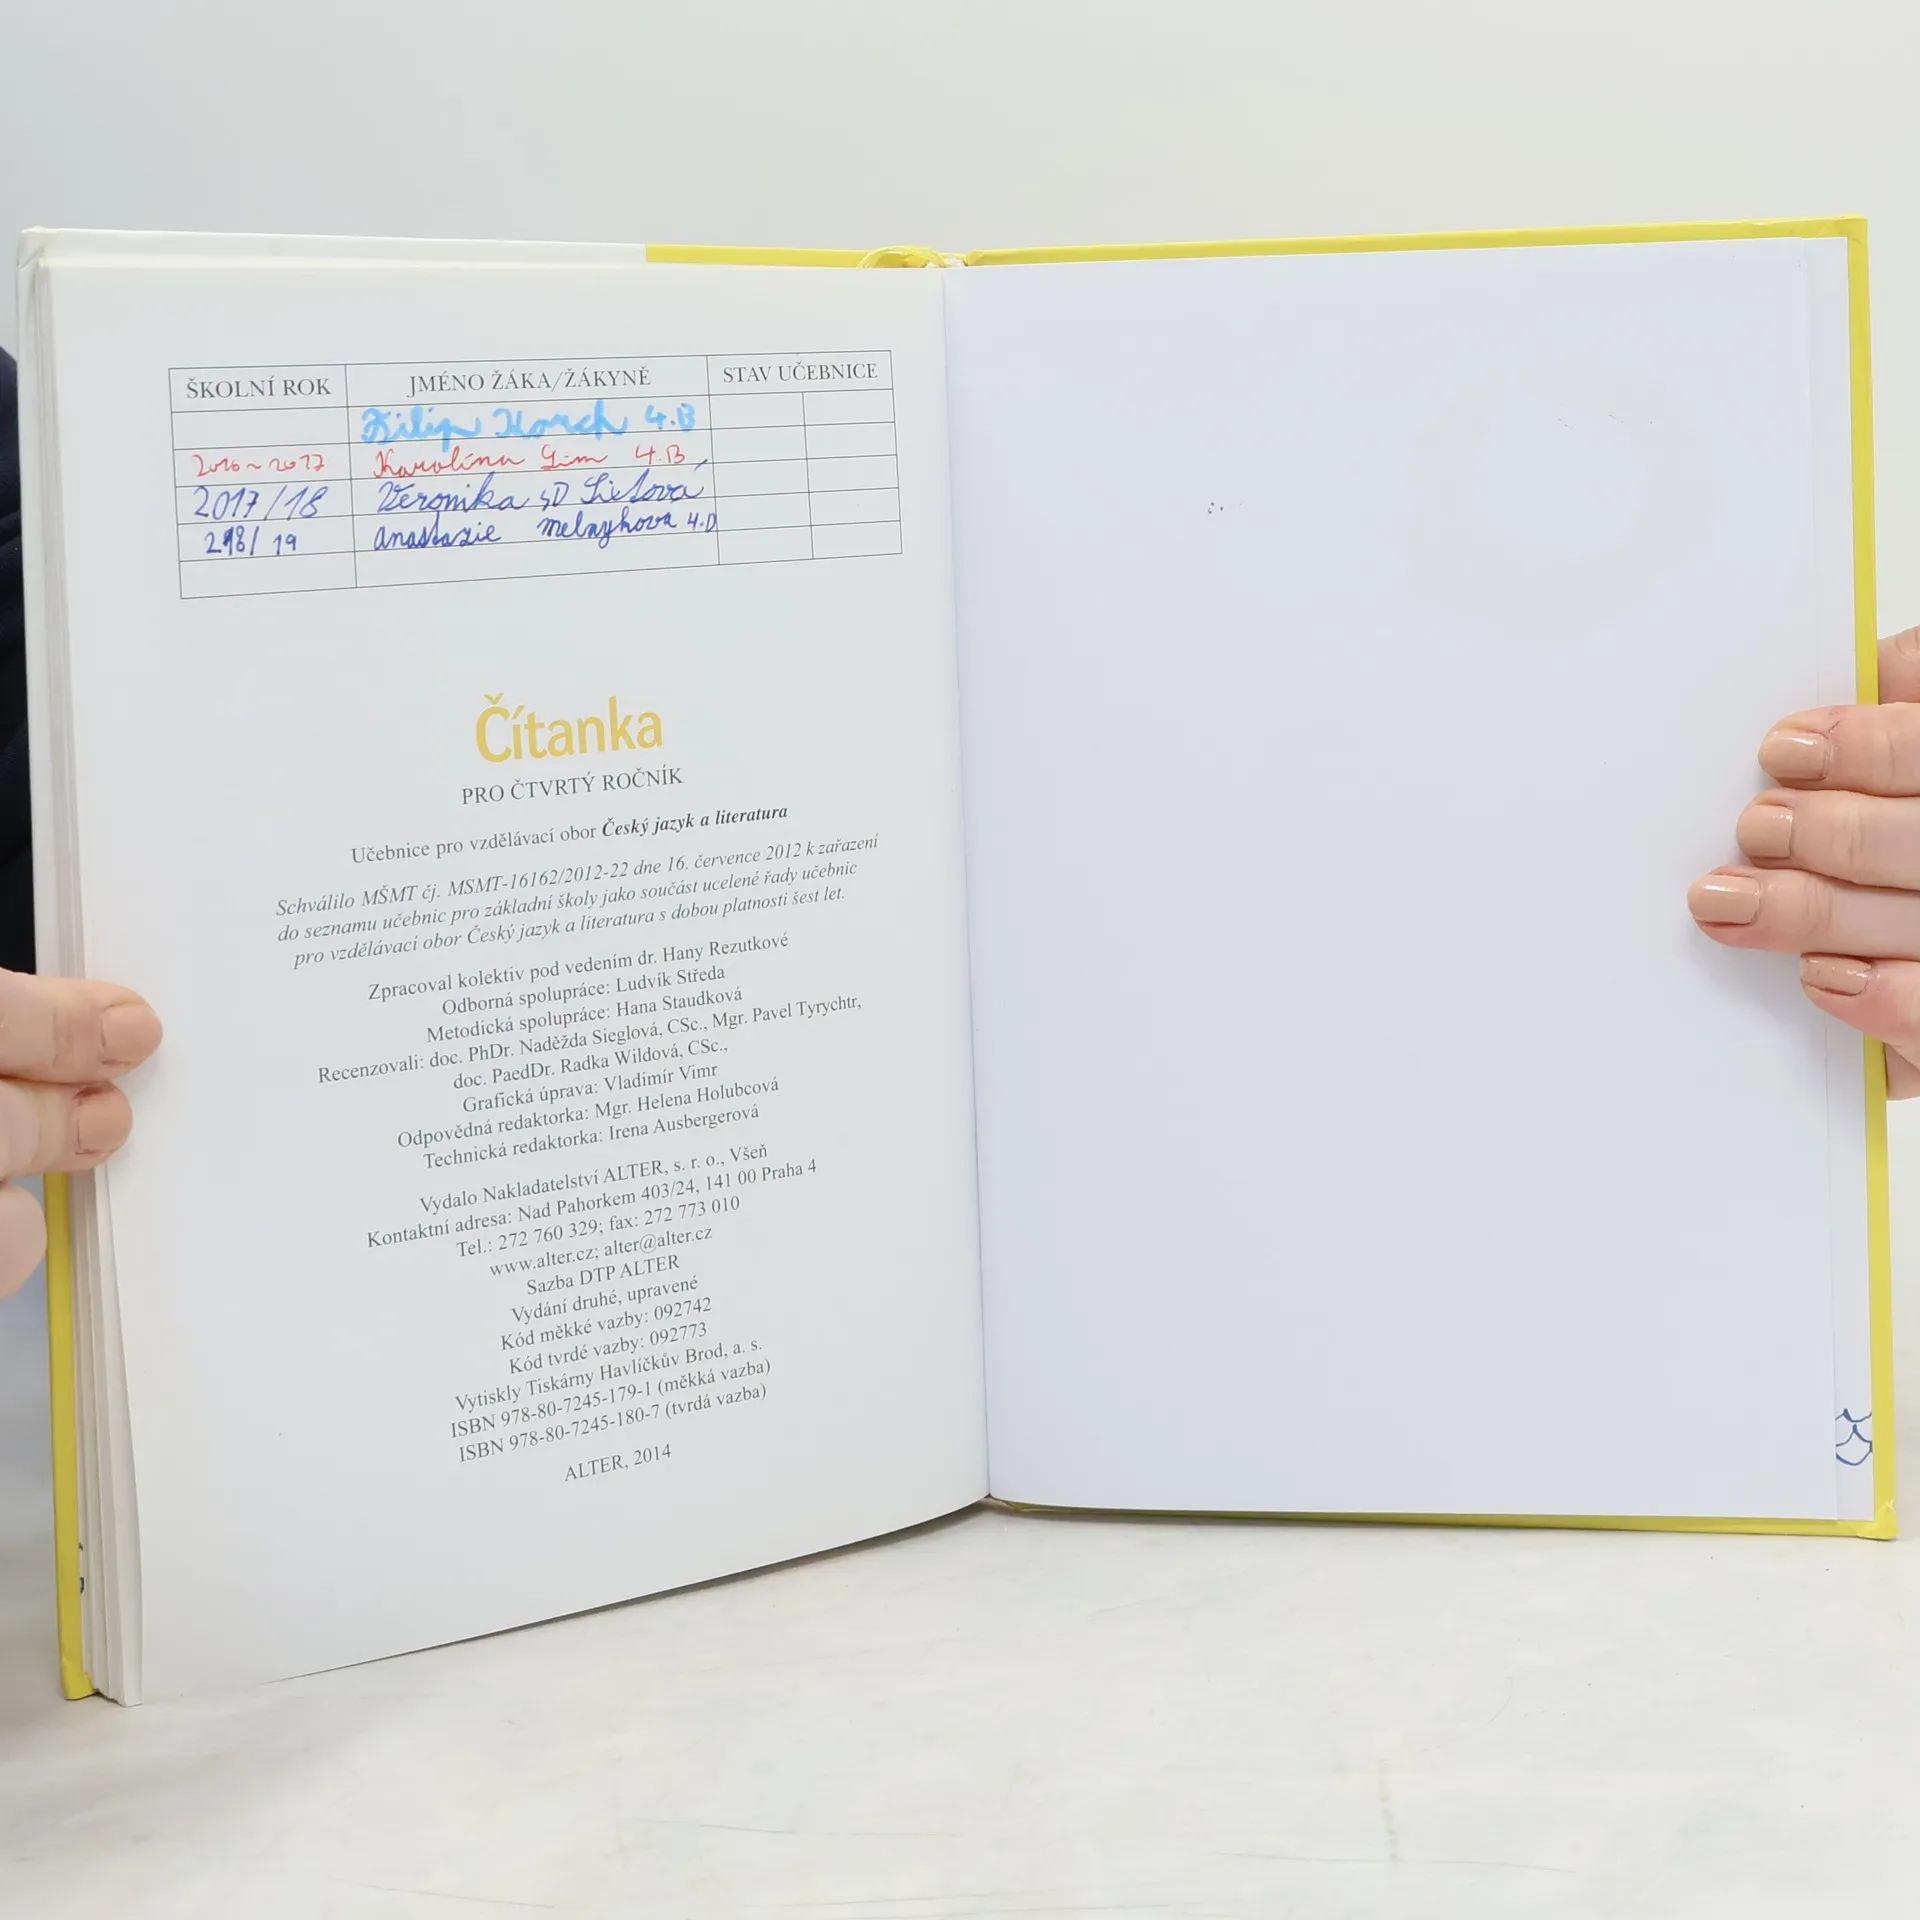 ŠKOLNÍ ROK JMÉNO ŽÁKA/ŽÁKYNĚ STAV UČEBNICE
Filip Horch 4.B
2016~2017 Karolína Gim 4.B
2017/18 Veronika
218/ 19 Anastazie Melnykova 4.D
Čítanka
PRO ČTVRTÝ ROČNÍK
Učebnice pro vzdělávací obor Český jazyk a literatura
Schválilo MŠMT čj. MSMT-16162/2012-22 dne 16. července 2012 k zařazení
do seznamu učebnic pro základní školy jako součást ucelené řady učebnic
pro vzdělávací obor Český jazyk a literatura s dobou platnosti šest let.
Zpracoval kolektiv pod vedením dr. Hany Rezutkové
Odborná spolupráce: Ludvík Středa
Metodická spolupráce: Hana Staudková
Recenzovali: doc. PhDr. Naděžda Sieglová, CSc., Mgr. Pavel Tyrychtr,
doc. PaedDr. Radka Wildová, CSc.,
Grafická úprava: Vladimír Vimr
Odpovědná redaktorka: Mgr. Helena Holubcová
Technická redaktorka: Irena Ausbergerová
Vydalo Nakladatelství ALTER, s. r. o., Všeň
Kontaktní adresa: Nad Pahorkem 403/24, 141 00 Praha 4
Tel.: 272 760 329; fax: 272 773 010
www.alter.cz; alter@alter.cz
Sazba DTP ALTER
Vydání druhé, upravené
Kód měkké vazby: 092742
Kód tvrdé vazby: 092773
Vytiskly Tiskárny Havlíčkův Brod, a. s.
ISBN 978-80-7245-179-1 (měkká vazba)
ISBN 978-80-7245-180-7 (tvrdá vazba)
ALTER, 2014